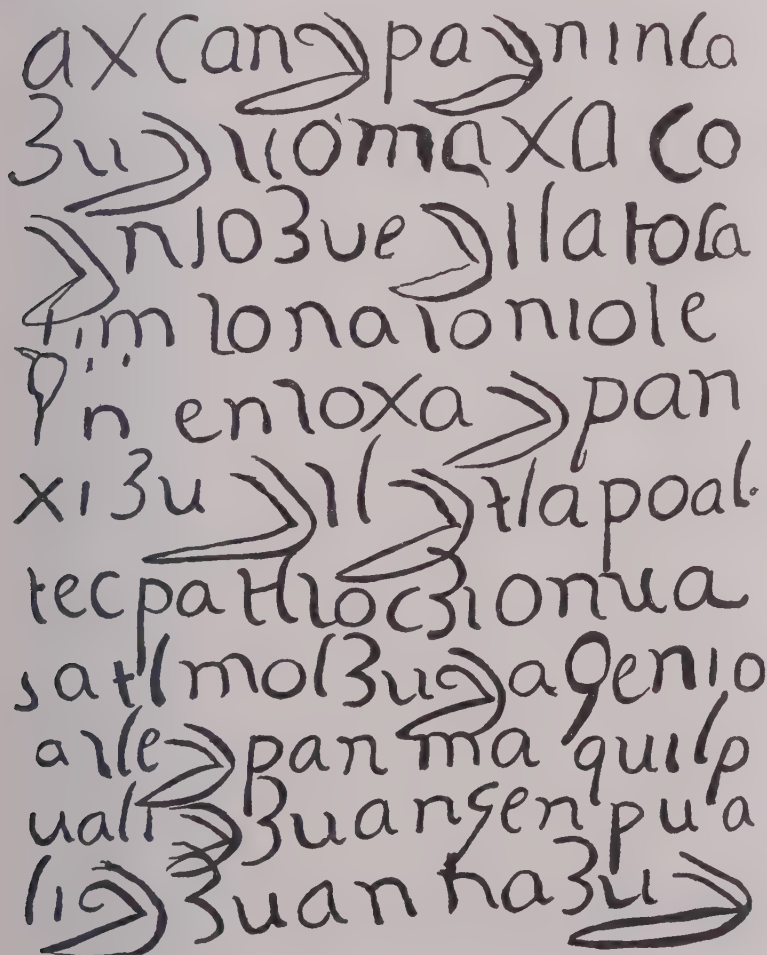 axcan y pa y ninca
3u y iiomaxaco
y nio3ue y llatoca
tim lonaioniole
qn en loxa y pan
xi3u y tl y tlapoal
tecpatl loc3ionua
satl mol3u y a qenio
alle y pan maquilp
uali y 3uan senpua
li y 3uan na3u y